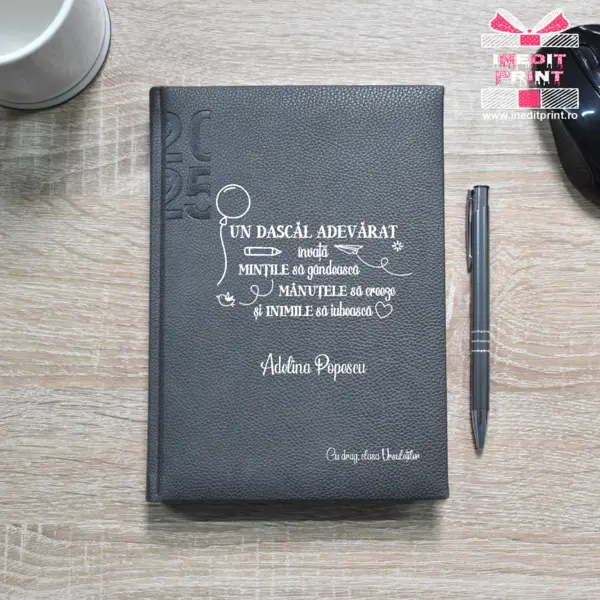 INEDIT
PRINT
www.ineditprint.ro
20
25
UN DASCĂL ADEVĂRAT
învață
MINȚILE să gândească
MÂNUȚELE să creeze
și INIMILE să iubească
Adelina Popescu
Cu drag, clasa Ursulețlor